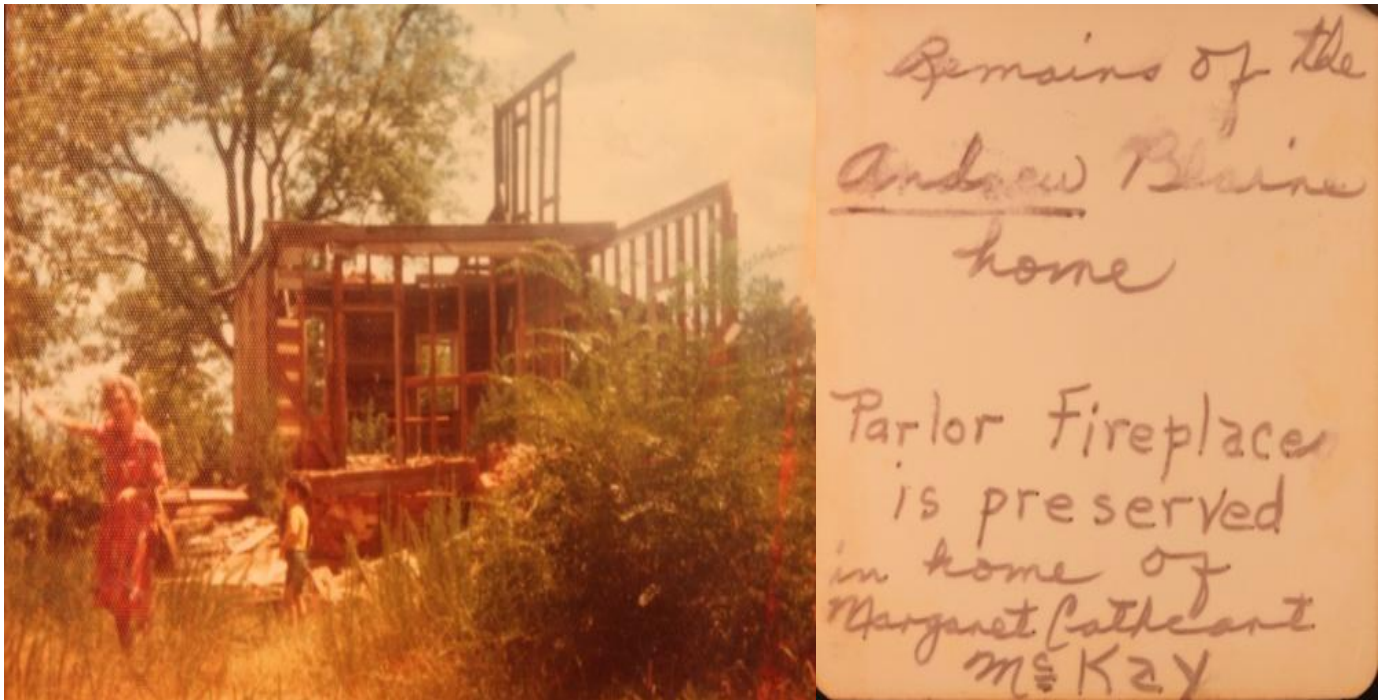 Remains of the
Andrew Blaine
home
Parlor Fireplace
is preserved
in home of
Margaret Cathcart
McKay